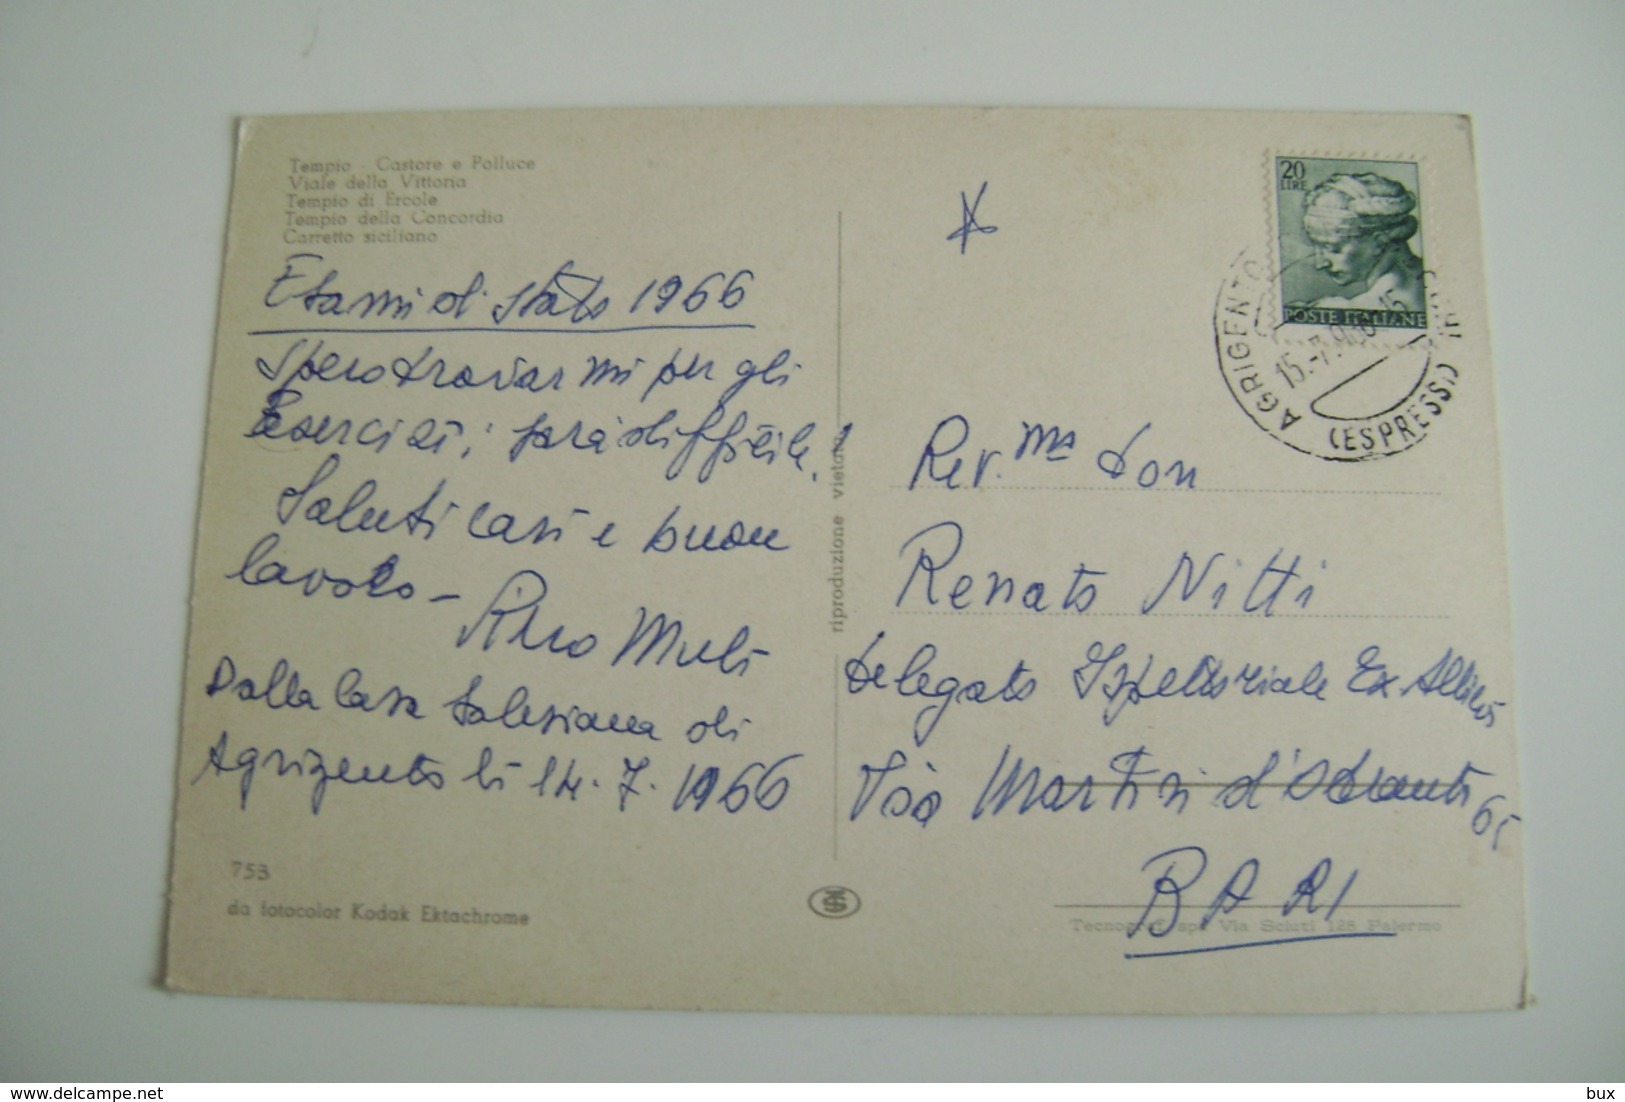 Tempio - Castore e Polluce
Viale della Vittoria
Tempio di Ercole
Tempio della Concordia
Carretto siciliano
Esami di Stato 1966
Spero trovarmi per gli
Esercizi; sarà difficile!
Saluti cari e buon
lavoro -
Dalla Casa Salesiana di
Agrigento lì 14.7.1966
753
da fotocolor Kodak Ektachrome
riproduzione vietata
20
LIRE
POSTE ITALIANE
AGRIGENTO
15.-7.1966
(ESPRESSI
Rev.mo don
Renato Nitti
Delegato Ispettoriale Ex Allievi
Via Martiri d'Otranto 65
BARI
Tecnograf spa Via Sciuti 128 Palermo
delcampe.net
bux